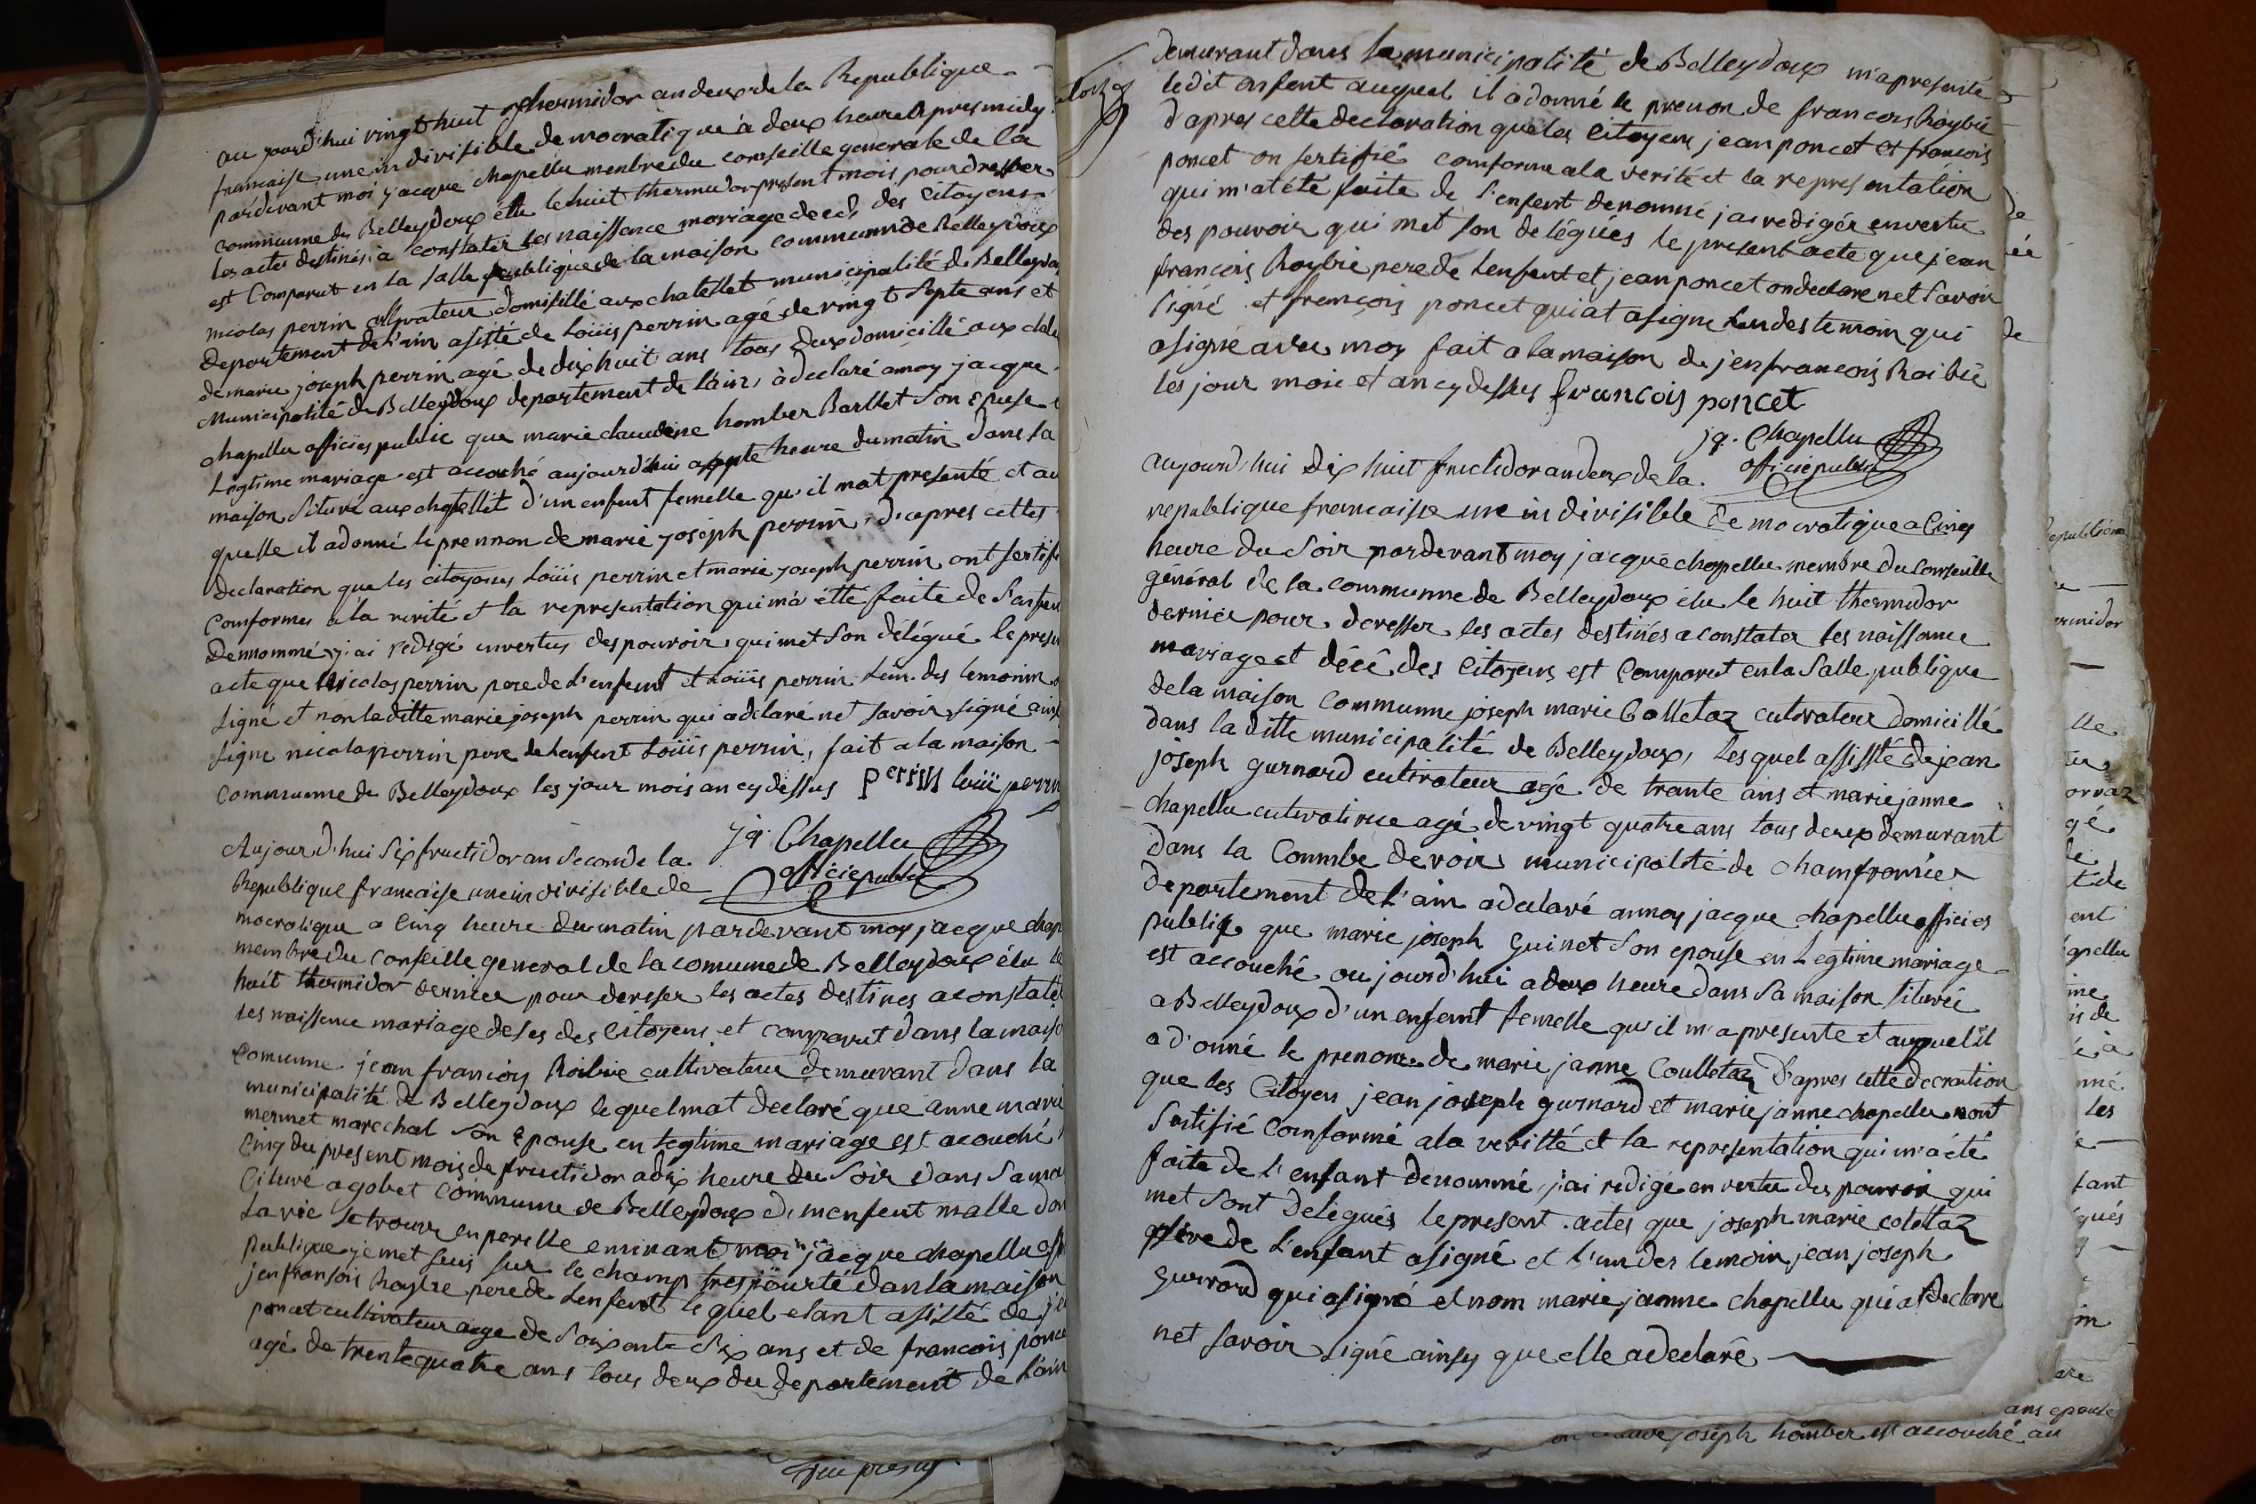 au jourd'hui vingt huit thermidor an deux de la Republique
francaise une indivisible democratique à deux heure apres midy
pardevant moi jacque chapellu menbre du conseille generale de la
commune de Belleydoux élu le huit thermidor present mois pour dresser
les actes destinés à constater les naissance mariage decès des Citoyens
est Comparut en la salle publique de la maison commune de Belleydoux
nicolas perrin cultivateur domisillé aux chatellet municipalité de Belleydoux
departement de l'ain asisté de Loüis perrin agé de vingt septe ans et
de marie joseph perrin agé de dix huit ans tous deux domicillé aux chate
Municipalité de Belleydoux departement de l'ain, à declaré a moy jacque
chapellu officier public que marie claudine homber Barllet son Epuse
Legtime mariage est acouché aujourd'hui a septe heure du matin dans la
maison situé aux chatellet d'un enfent femelle qu'il mat presenté et au
quelle il a donné le prennon de marie joseph perrin, d'apres cettes
declaration que les citoyens Loüis perrin et marie joseph perrin ont sertifi
conformes a la verité et la representation qui m'a étté faite de l'enfen
dennommé j'ai redigé en vertus des pouvoir qui met son délégué le presen
acte que Nicolas perrin pere de l'enfent et Loüis perrin l'un des temonin
signé et non la ditte marie joseph perrin qui a déclaré net savoir signé ainsi
signe nicola perrin pere de l'enfent Loüis perrin, fait a la maison
commune de Belleydoux les jour mois an cy dessus perrin louï perrin
jq. Chapellu
officié public
Aujourd'hui six fructidor an second de la
Republique francaise une indivisible de
mocratique a cinq heure du matin pardevant moy jacque chap
membre du conseille general de la comune de Belleydoux élu le
huit thermidor dernier pour dereser les actes destines a constate
les naissance mariage deses des Citoyens et comparut dans la maiso
comune jean francois Roibie cultivateur demeurant dans la
municipalité de Belleydoux lequel mat declaré que anne marie
mermet marechal son Epouse en legtime mariage est acouché
cinq du present mois de fructidor a dix heure du soir dans sa mai
citure a gobet commune de Belleydoux d'un enfent malle don
la vie se trouve en perille eminant moi jacque chapellu offi
publique je met suis sur le champ tresporté dan la maison
jenfransois Roybie pere de l'enfent le quel etant asisté de je
poncet cultivateur age de soixante six ans et de francois ponce
agé de trente quatre ans tous deux du departement de l'ain
demurant dans la municipalité de Belleydoux m'a presenté
ledit enfent auquel il a donné le prenon de francois Roybie
d'apres cette declaration que les Citoyens jean poncet et francois
poncet on sertifié conforme a la verité et la representation
qui m'at été faite de l'enfent denommé j'ai redigér en vertu
des pouvoir qui met son delégués le present acte que jean
francois Roybie pere de l'enfent et jean poncet on declare net savoir
signé et françois poncet qui at a signe l'un des temoin qui
a signé avec moy fait a la maison de jenfrancois Roibie
les jour mois et an cy dessus françois poncet
jq. Chapellu
officié public
aujourd'hui dix huit fructidor an deux de la
republique francaise une indivisible democratique a cinq
heure du soir pardevant moy jacque chapellu membre du conseille
général de la commune de Belleydoux élu le huit thermidor
dernier pour deresser les actes destinés a constater les naissance
mariage et décé des Citoyens est Comparut en la salle publique
de la maison commune joseph marie Colletaz cutivateur domicillé
dans la ditte municipalité de Belleydoux, lesquel assisté de jean
joseph gurnard cutivateur agé de trante ans et marie janne
chapellu cutivatrice agé de vingt quatre ans tous deux demurant
dans la Coumbe devoir municipalité de chamfromier
departement de l'ain a declaré a moy jacque chapellu officier
publiq que marie joseph guinet son epouse en Legtime mariage
est accouché oujourd'hui a deux heure dans sa maison situvé
a Belleydoux d'un enfent femelle qu'il m'a presente et auquel il
a d'onné le prenom de marie janne Coulletaz d'apres cette decration
que les Citoyen jean joseph gurnard et marie janne chapellu mont
sertifié comformé a la veritté et la representation qui m'a été
faite de l'enfant denommé, j'ai redigé en vertu des pouvoir qui
met sont délégués le present actes que joseph marie coletaz
pere de l'enfant a signé et l'un des temoin jean joseph
gurnard qui a signé et nom marie janne chapellu qui at declare
net savoir signé ainsy que elle a declaré
joseph homber est accouché au